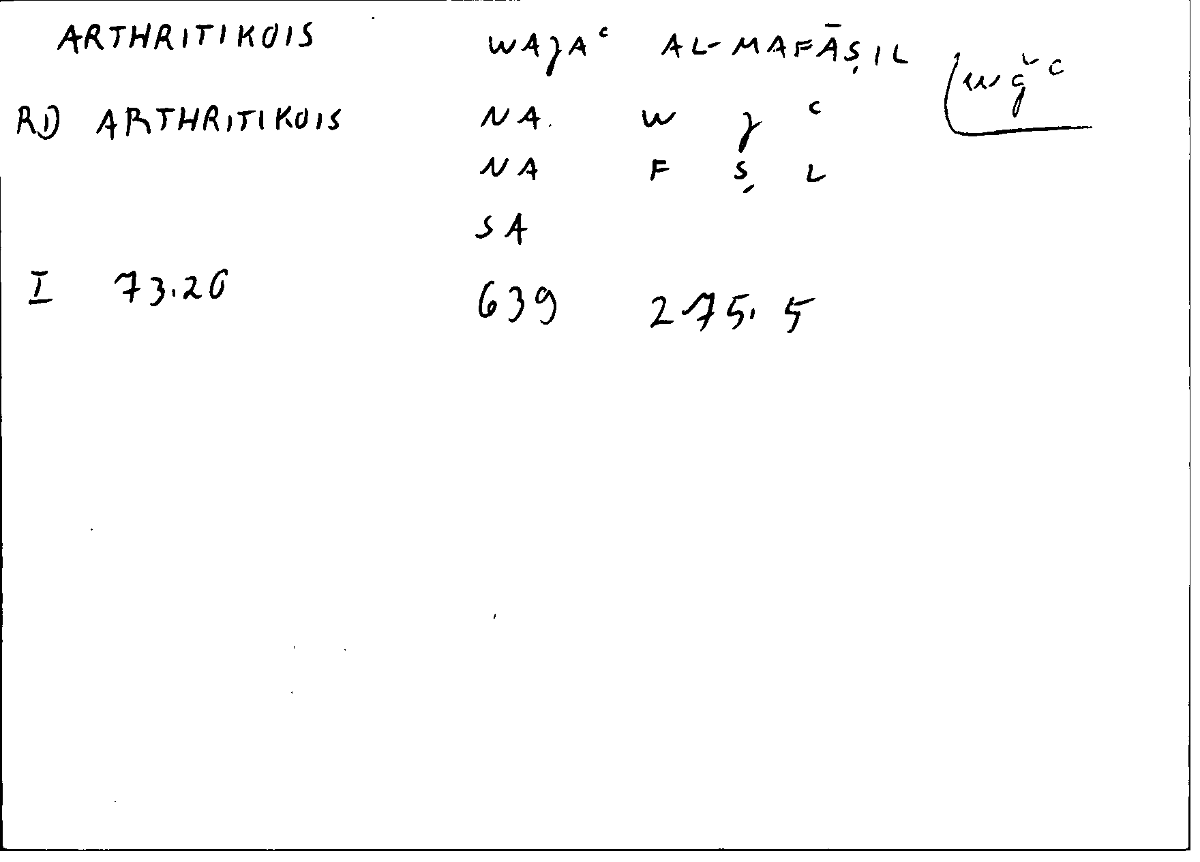 ARTHRITIKOIS WAJAᶜ AL-MAFĀṢIL wǧᶜ
RD ARTHRITIKOIS NA. W J ᶜ
NA F Ṣ L
SA
I 73.20 639 275.5